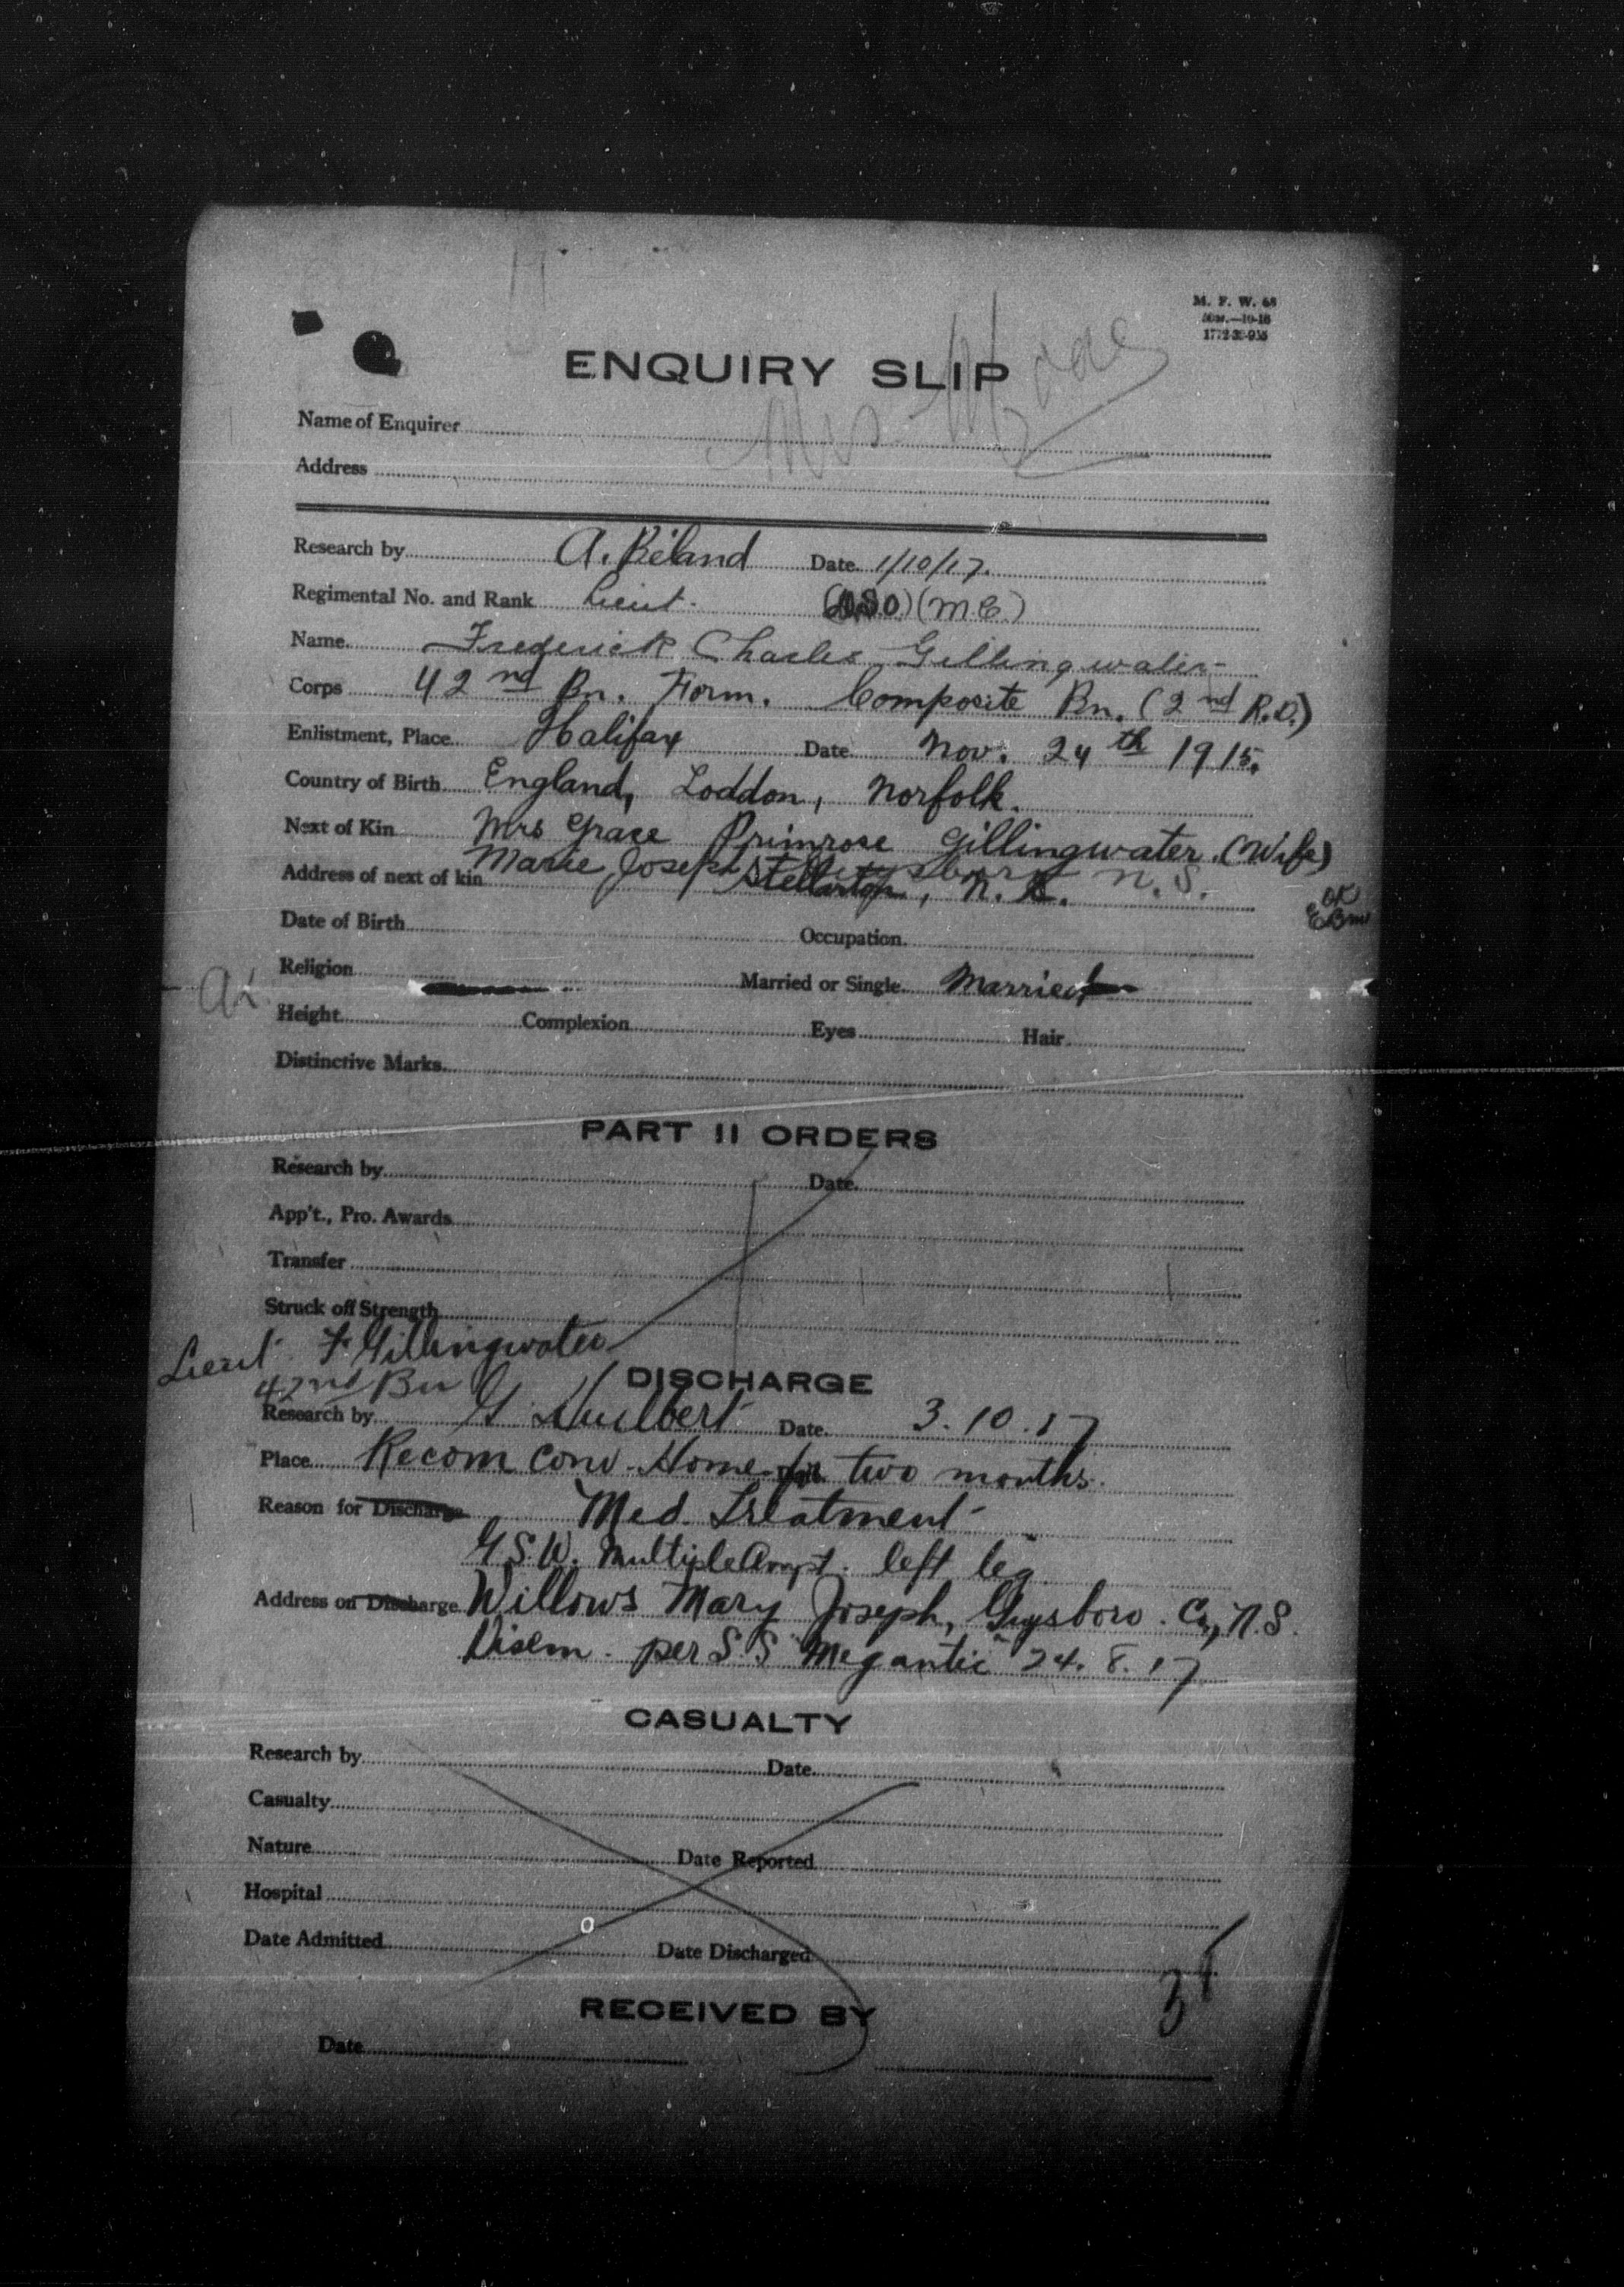 M. F. W. 68
1772-39-935
ENQUIRY SLIP
Name of Enquirer
Address
Research by A. Béland Date 1/10/17.
Regimental No. and Rank Lieut. (DSO) (M.C.)
Name Frederick Charles Gillingwater
Corps 42nd Bn. Form. Composite Bn. (2nd R.D.)
Enlistment, Place Halifax Date Nov. 24th 1915.
Country of Birth England, Loddon, Norfolk.
Next of Kin Mrs Grace Primrose Gillingwater. (Wife)
Address of next of kin Marie Joseph Stellarton, N. S. N.S.
OK
Date of Birth Occupation
Religion Married or Single Married
Height Complexion Eyes Hair
Distinctive Marks
PART II ORDERS
Research by Date
App't., Pro. Awards
Transfer
Struck off Strength
Lieut. F Gillingwater
42nd Bn
DISCHARGE
Research by G Huilbert Date 3.10.17
Place Recom Conv. Home for two months.
Reason for Discharge Med. Treatment
G.S.W. Multiple Ampt. left leg
Address on Discharge Willows Mary Joseph, Guysboro. Co, N.S.
Disem. per S.S "Megantic" 24.8.17
CASUALTY
Research by Date
Casualty
Nature Date Reported
Hospital
Date Admitted Date Discharged
RECEIVED BY
Date